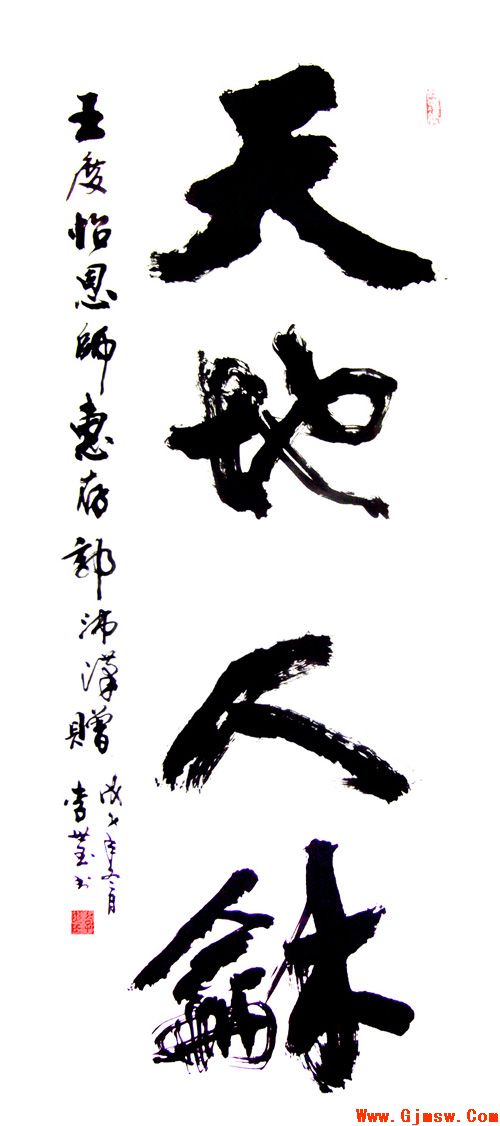 天地人龢
王度怡恩师惠存郭沛漢贈
戊子年冬月
李
Www.Gjmsw.Com